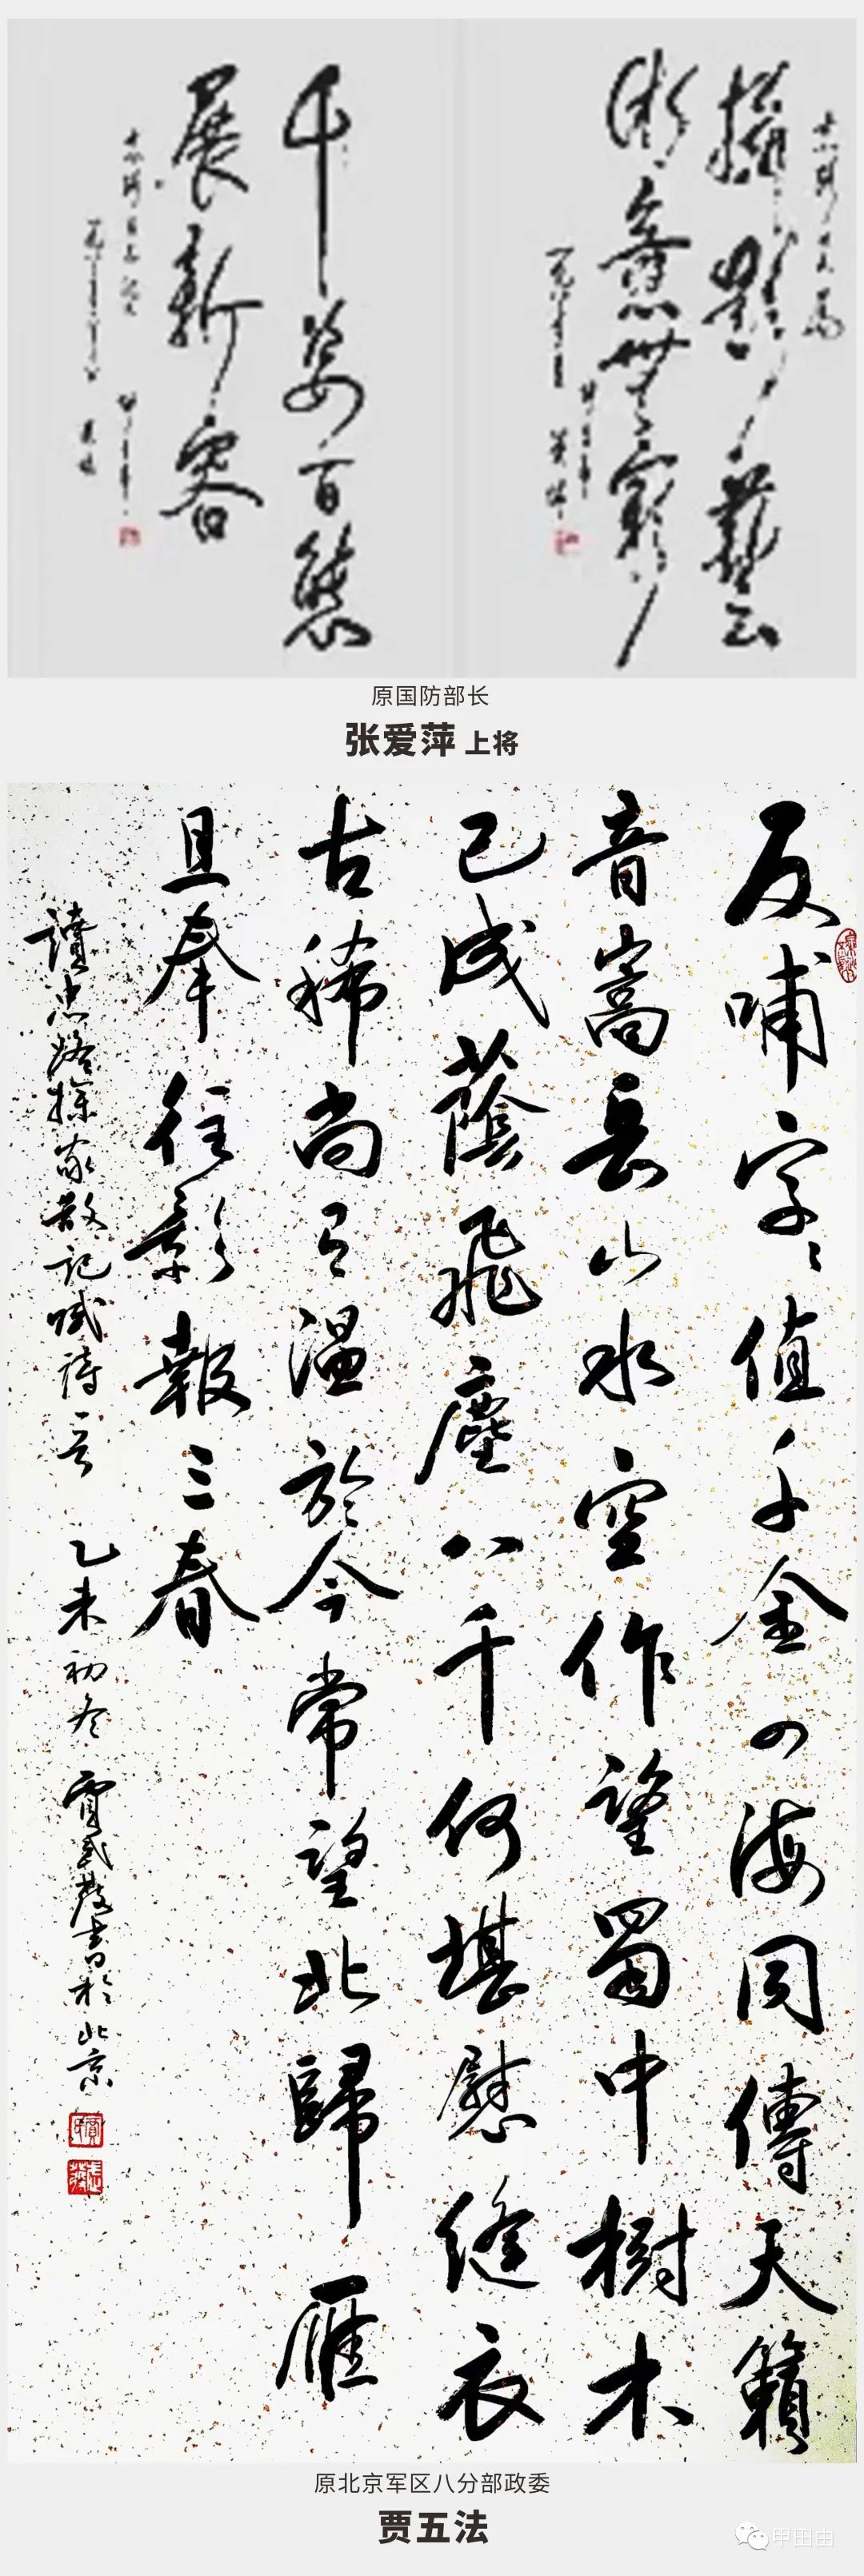 攝影藝
術意無窮
千姿百態
展新容
原国防部长
张爱萍 上将
反哺字字值千金四海同傳天籟
音嵩岳山水空作望蜀中樹木
已成蔭飛塵八千何堪慰縫衣
古稀尚有溫於今常望北歸雁
且奉往影報三春
讀忠探家散記賦詩 乙未初冬 賈書於北京
原北京军区八分部政委
贾五法
甲田由